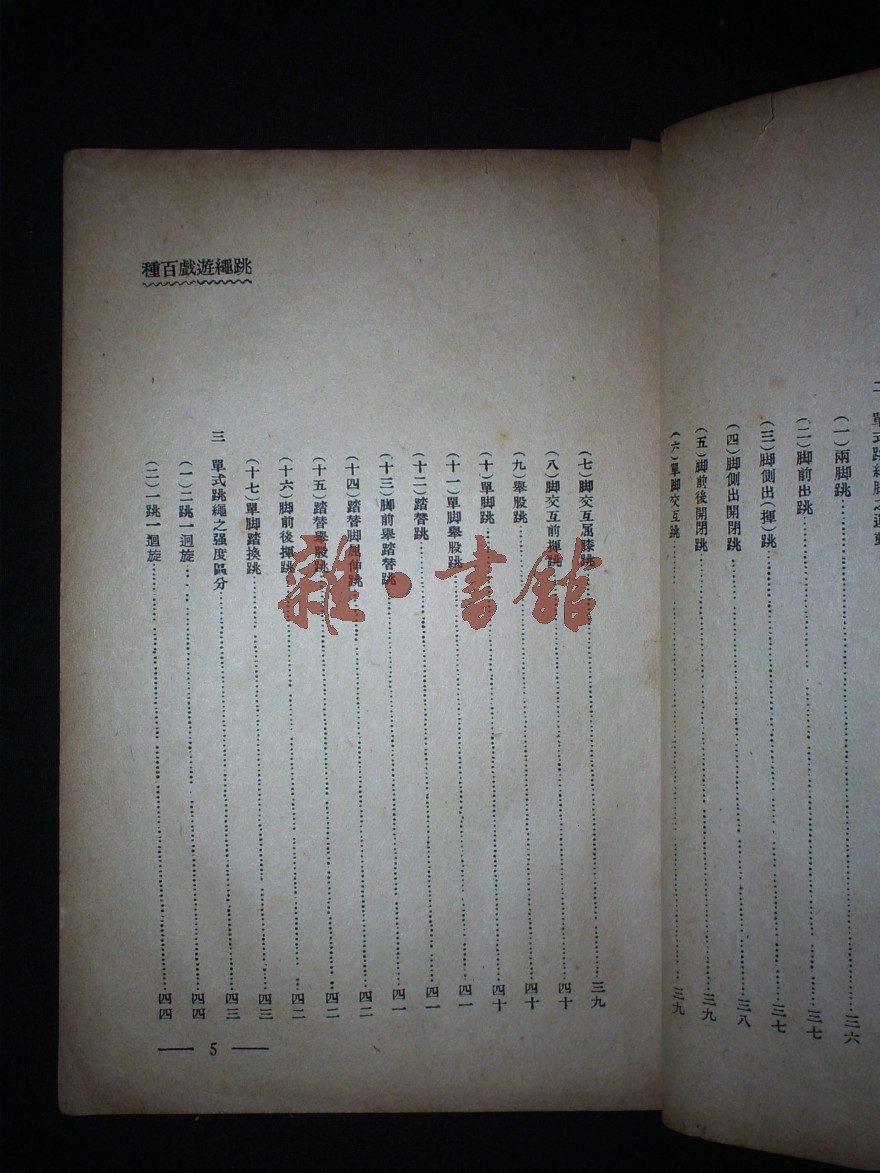 二 單式跳繩脚之運動
(一)兩脚跳……三六
(二)脚前出跳……三七
(三)脚側出(揮)跳……三七
(四)脚側出開閉跳……三八
(五)脚前後開閉跳……三九
(六)單脚交互跳……三九
跳繩遊戲百種
(七)脚交互屈膝跳……三九
(八)脚交互前揮跳……四十
(九)舉股跳……四十
(十)單脚跳……四十
(十一)單脚舉股跳……四一
(十二)踏替跳……四一
(十三)脚前舉踏替跳……四一
(十四)踏替脚屈伸跳……四二
(十五)踏替舉股跳……四二
(十六)脚前後揮跳……四二
(十七)單脚踏換跳……四三
三 單式跳繩之强度區分……四三
(一)二跳一迴旋……四四
(二)一跳一迴旋……四四
— 5 —
雜·書館